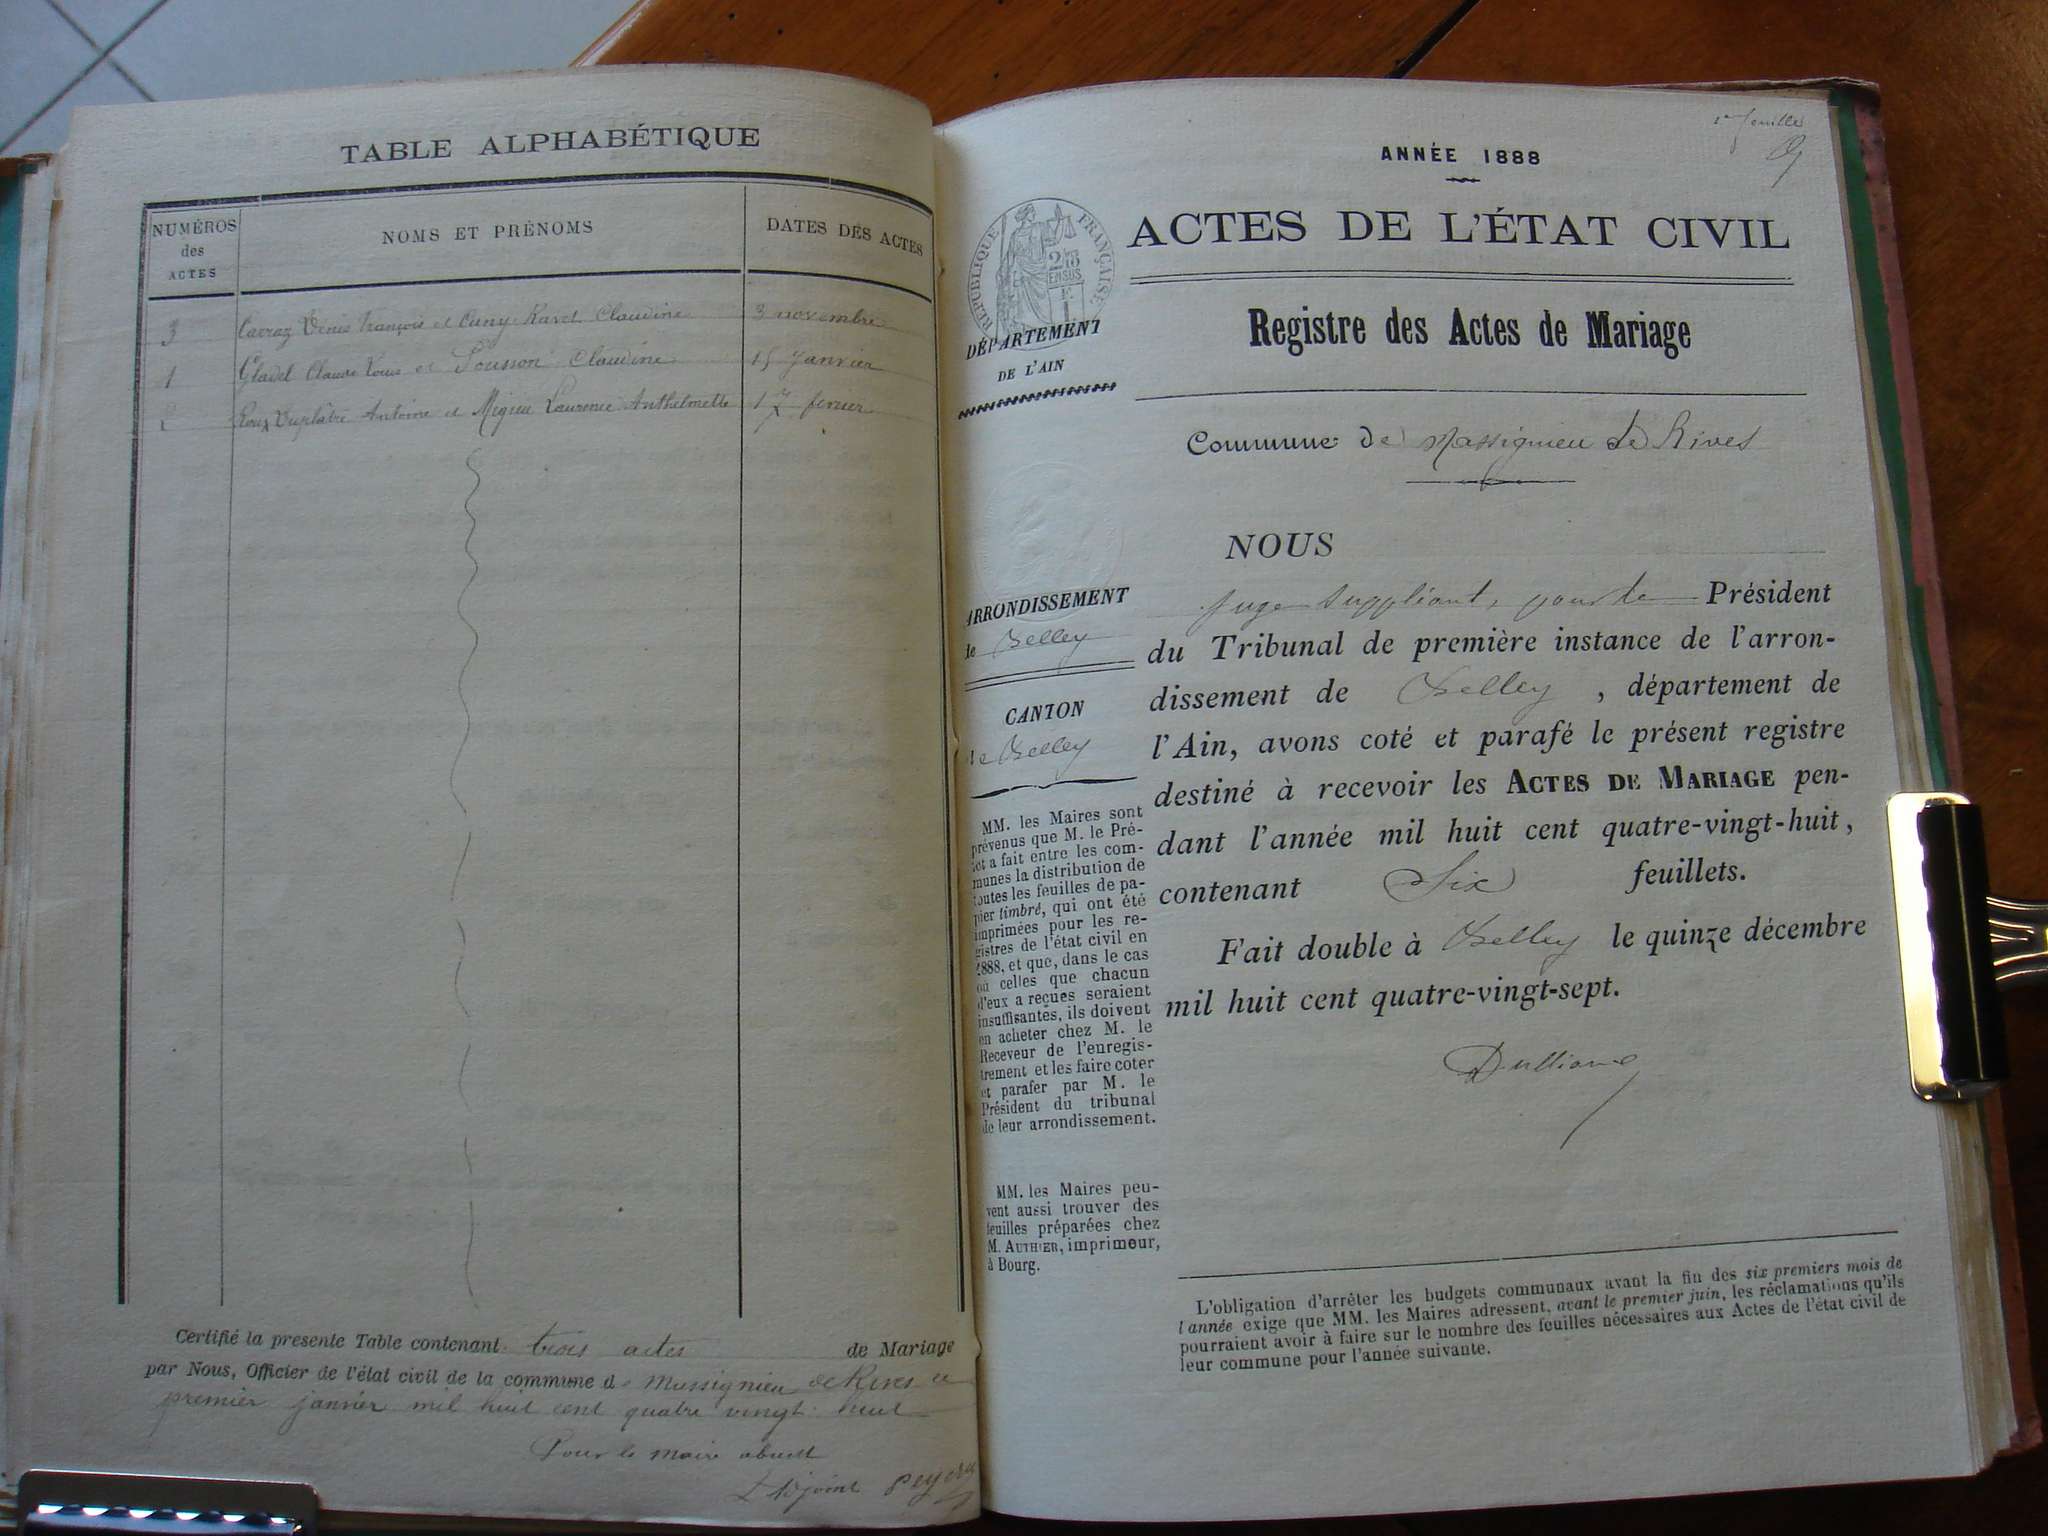 TABLE ALPHABÉTIQUE
NUMÉROS
des
ACTES
NOMS ET PRÉNOMS
DATES DES ACTES
3 Carraz Denis François et Cuny-Ravet Claudine 3 novembre
1 Gladel Claude Louis et Pousson Claudine 15 janvier
2 Roux Duplâtre Antoine et Migieu Laurence Anthelmette 17 fevrier
Certifié la presente Table contenant trois actes de Mariage
par Nous, Officier de l'état civil de la commune de Massignieu de Rives ce
premier janvier mil huit cent quatre vingt huit
Pour le maire absent
L'adjoint
1re feuille
ANNÉE 1888
ACTES DE L'ÉTAT CIVIL
RÉPUBLIQUE FRANÇAISE
2/10 EN SUS
DÉPARTEMENT
DE L'AIN
Registre des Actes de Mariage
Commune de Massignieu de Rives
ARRONDISSEMENT
de Belley
CANTON
de Belley
MM. les Maires sont
prévenus que M. le Pré-
fet a fait entre les com-
munes la distribution de
toutes les feuilles de pa-
pier timbré, qui ont été
imprimées pour les re-
gistres de l'état civil en
1888, et que, dans le cas
où celles que chacun
d'eux a reçues seraient
insuffisantes, ils doivent
en acheter chez M. le
Receveur de l'enregis-
trement et les faire coter
et parafer par M. le
Président du tribunal
de leur arrondissement.
MM. les Maires peu-
vent aussi trouver des
feuilles préparées chez
M. AUTHIER, imprimeur,
à Bourg.
NOUS
Juge Suppléant, pour le Président
du Tribunal de première instance de l'arron-
dissement de Belley, département de
l'Ain, avons coté et parafé le présent registre
destiné à recevoir les ACTES DE MARIAGE pen-
dant l'année mil huit cent quatre-vingt-huit,
contenant Six feuillets.
Fait double à Belley le quinze décembre
mil huit cent quatre-vingt-sept.
L'obligation d'arrêter les budgets communaux avant la fin des six premiers mois de
l'année exige que MM. les Maires adressent, avant le premier juin, les réclamations qu'ils
pourraient avoir à faire sur le nombre des feuilles nécessaires aux Actes de l'état civil de
leur commune pour l'année suivante.